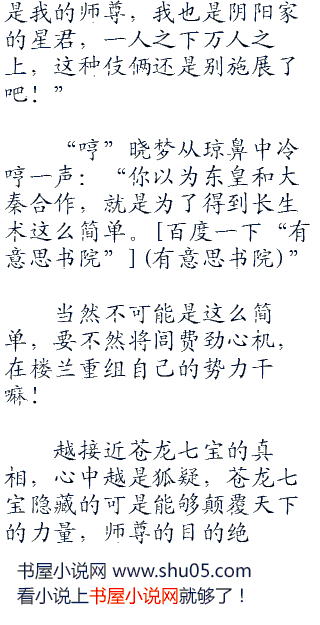 是我的师尊，我也是阴阳家
的星君，一人之下万人之
上，这种伎俩还是别施展了
吧！”
“哼”晓梦从琼鼻中冷
哼一声：“你以为东皇和大
秦合作，就是为了得到长生
术这么简单。[百度一下“有
意思书院”](有意思书院)”
当然不可能是这么简
单，要不然将闾费劲心机，
在楼兰重组自己的势力干
嘛！
越接近苍龙七宝的真
相，心中越是狐疑，苍龙七
宝隐藏的可是能够颠覆天下
的力量，师尊的目的绝
书屋小说网 www.shu05.com
看小说上书屋小说网就够了！